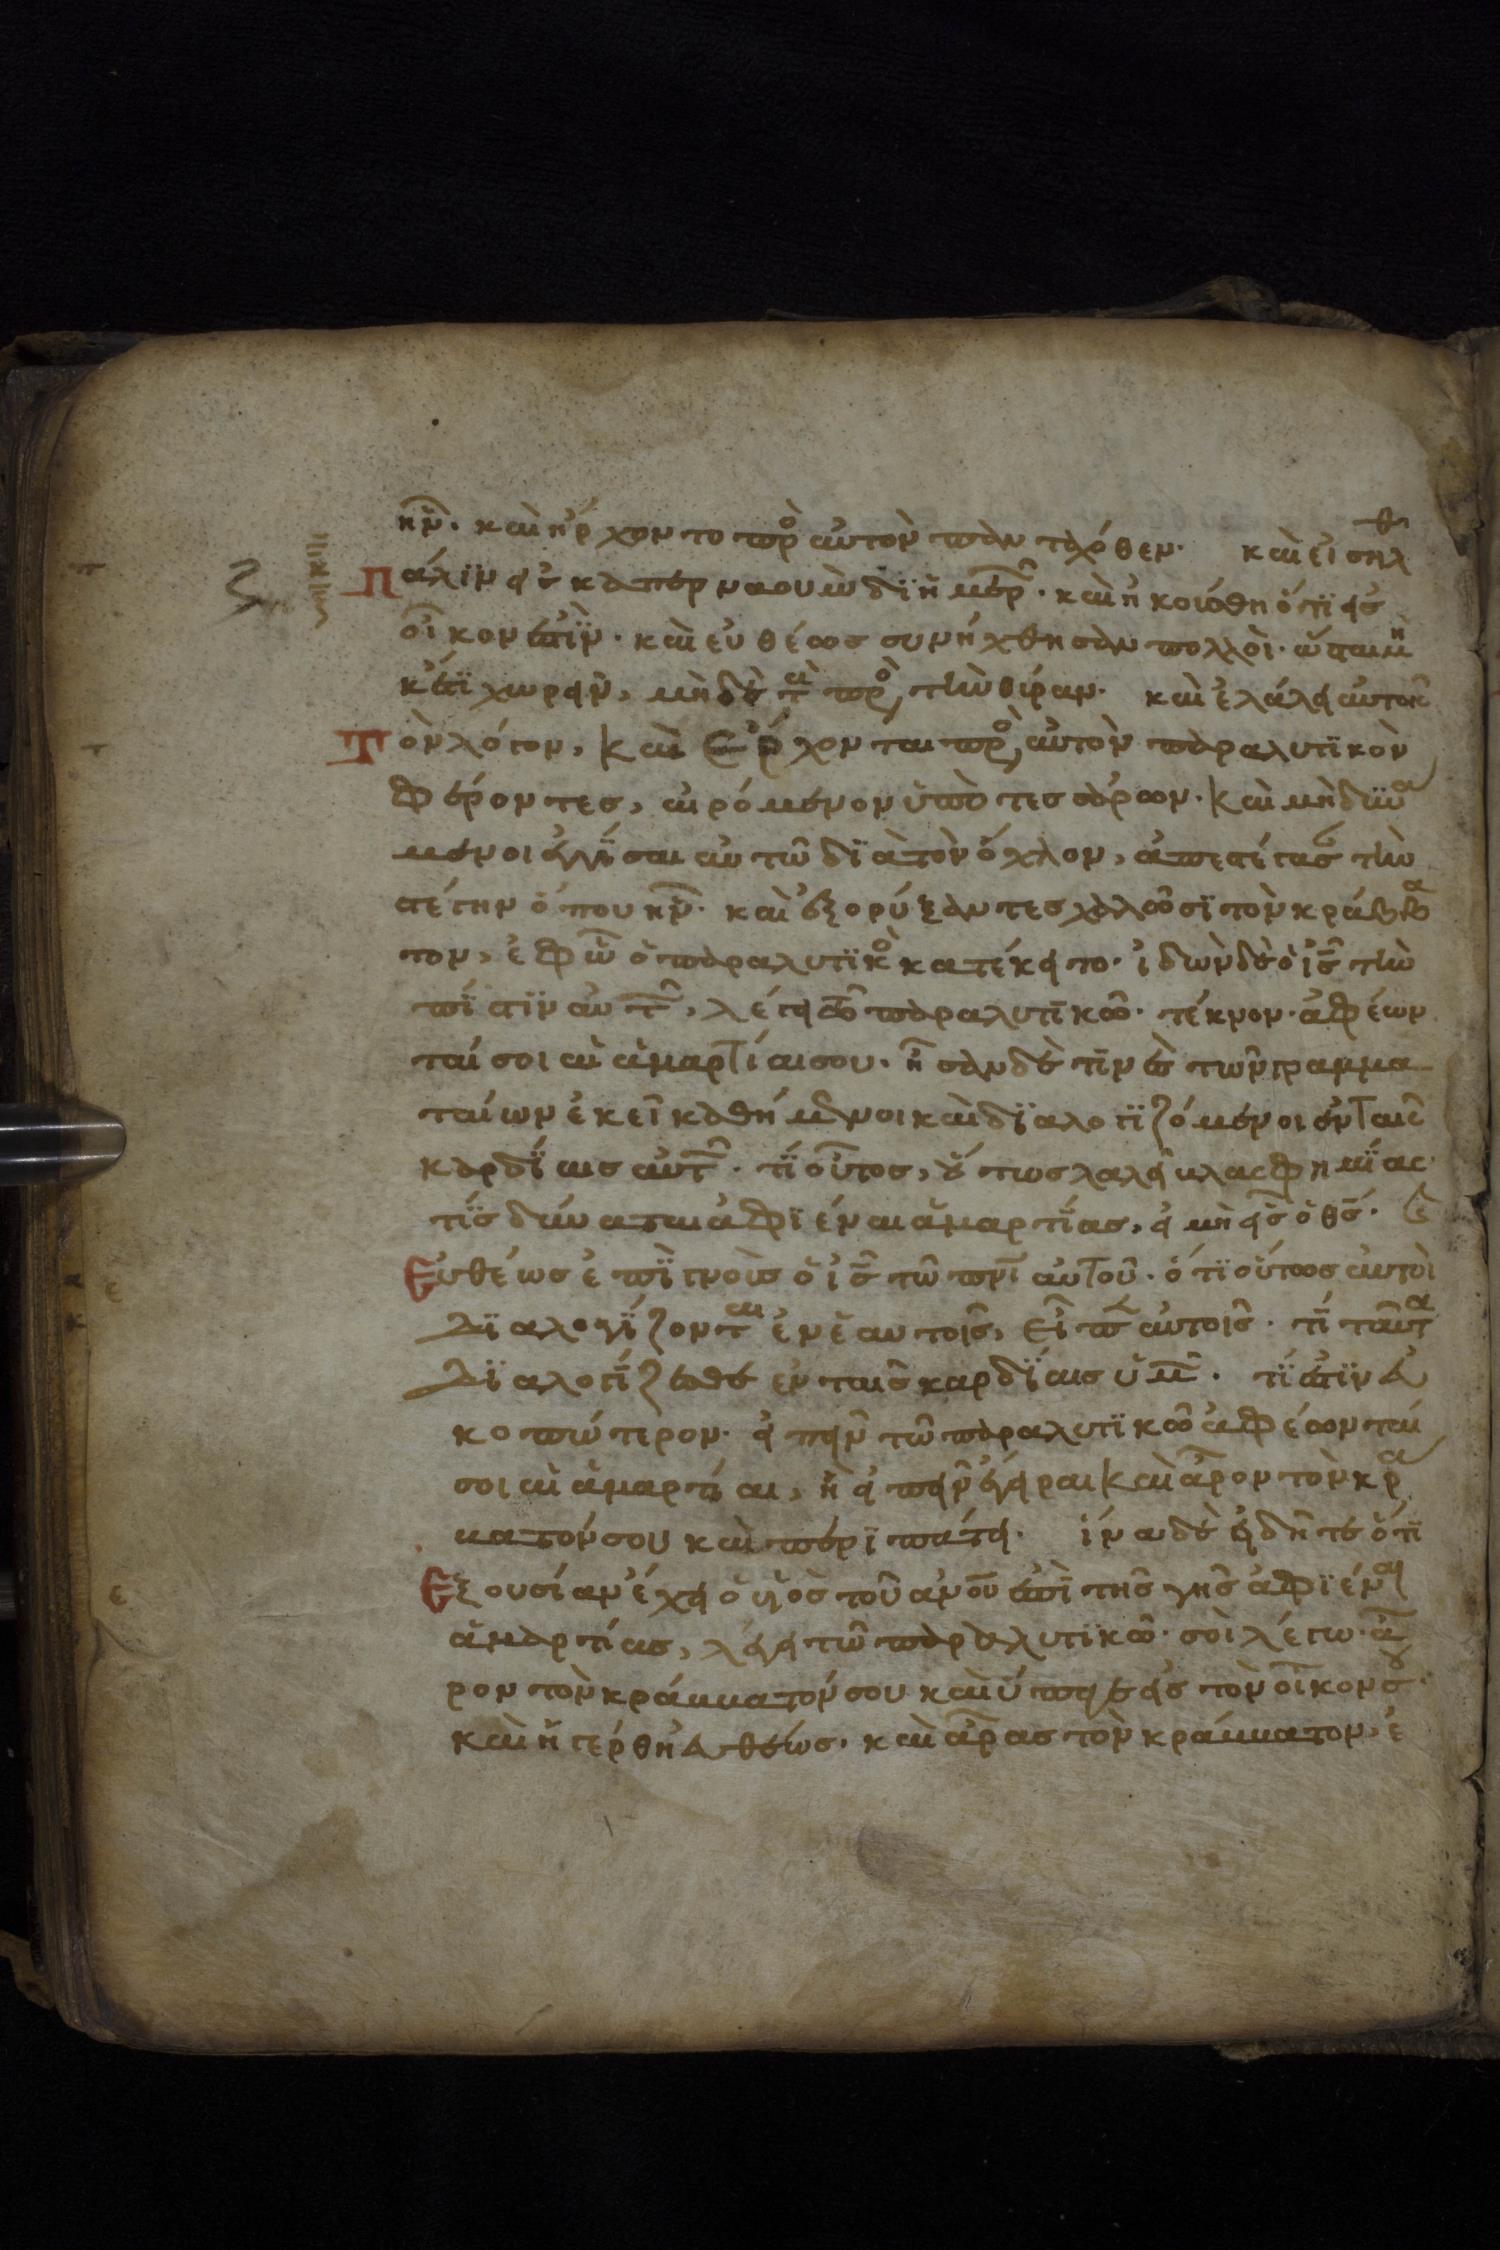 ην· και ήρχοντο πρὸ αὐτὸν πανταχόθεν· και εἰσηλθ
Πάλϊν εἰς καπερναουμ δϊ ἡμερ̑· και ἠκούσθη ὅτϊ εἰς
οἶκον ἐστϊν· και εὐθέως συνήχθησαν πολλοὶ· ὥσται μη
κέτϊ χωρεῖν, μηδὲ τὰ πρὸ τὴν θύραν· και ἐλάλει αὐτοῖς
Τὸν λόγον, και Ἔρχονται πρὸ αὐτὸν παραλυτϊκὸν
φέροντες, αἰρόμενον ὑπὸ τεσσάρων· και μὴ δυνα
μενοι ἐγγῆσαι αὐτῶ δϊὰ τὸν ὄχλον, ἀπεστέγασ τὴν
στέγην ὅπου ην· και ἐξορύξαντες χαλῶσϊ τὸν κράββα
τον, ἐφ ὧ ὁ παραλυτϊκὸ κατέκειτο· ἰδὼν δὲ ὁ ις τὴν
πίστϊν αὐτ̑, λέγει τῶ παραλυτϊκῶ· τέκνον· ἀφέων
ταί σοι αἱ ἁμαρτίαι σου· ἦσαν δέ τϊνες τῶν γραμμα
ταίων ἐκεῖ καθήμενοι και δϊαλογϊζόμενοι ἐν ταῖς
καρδϊαις αὐτ̑· τϊ οὗτος, οὕτως λαλεῖ βλασφημϊας·
τϊς δύναται ἀφϊέναι ἁμαρτϊας, εἰ μὴ εἷς ὁ θς·
Εὐθέως ἐπϊγνοὺς ὁ ις τῶ πνϊ αὐτοῦ· ὅτϊ οὕτως αὐτοὶ
δϊαλογϊζονται ἐν ἑαυτοῖς, Εἶπεν αὐτοῖς· τϊ ταῦτα
δϊαλογϊζεσθε ἐν ταῖς καρδϊαις ὑμ̑· τϊ ἐστϊν εὐ
κοπώτερον· εἰπεῖν τῶ παραλυτϊκῶ ἀφέωνταί
σοι αἱ ἁμαρτίαι, ἢ εἰπεῖν ἔγειραι και ἆρον τὸν κρα
βατόν σου και περϊπάτει· ἵνα δὲ εἰδῆτε ὅτϊ
Ἐξουσίαν ἔχει ὁ υἱὸς τοῦ ανου ἐπὶ τῆς γῆς ἀφϊέναι
ἁμαρτίας, λέγει τῶ παραλυτϊκῶ· σοὶ λέγω· ἆ
ρον τὸν κράββατόν σου και ὕπαγε εἰς τὸν οἶκον σου·
και ἠγέρθη εὐθέως· και ἄρας τὸν κράββατον, ἐ